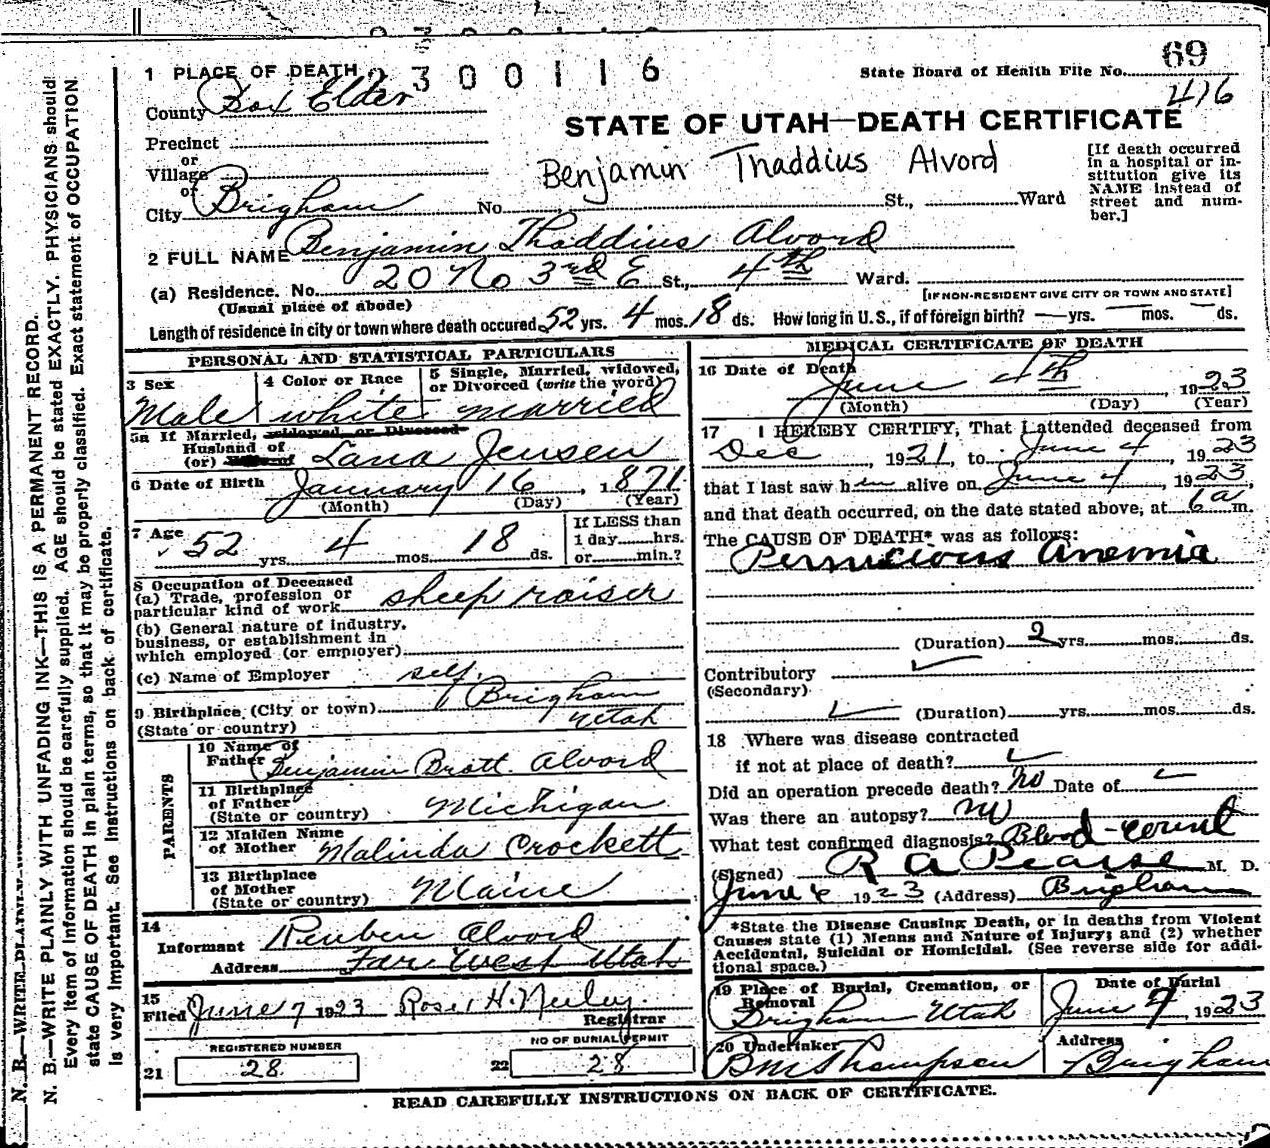 2300116
69
State Board of Health File No.
416
1 PLACE OF DEATH
County Box Elder
STATE OF UTAH—DEATH CERTIFICATE
Precinct
or
Village
of
Benjamin Thaddius Alvord
[If death occurred
in a hospital or in-
stitution give its
NAME instead of
street and num-
ber.]
City Brigham No. St., Ward
2 FULL NAME Benjamin Thaddius Alvord
(a) Residence. No. 20 No 3rd E St., 4th Ward.
(Usual place of abode)
[IF NON-RESIDENT GIVE CITY OR TOWN AND STATE]
Length of residence in city or town where death occured 52 yrs. 4 mos. 18 ds. How long in U.S., if of foreign birth? — yrs. — mos. — ds.
PERSONAL AND STATISTICAL PARTICULARS
3 Sex
Male
4 Color or Race
white
5 Single, Married, widowed,
or Divorced (write the word)
married
5a If Married, widowed or Divorced
Husband of
(or) Wife of Jensen
6 Date of Birth January 16, 1871
(Month) (Day) (Year)
7 Age
52 yrs. 4 mos. 18 ds.
If LESS than
1 day hrs.
or min.?
8 Occupation of Deceased
(a) Trade, profession or
particular kind of work sheep raiser
(b) General nature of industry,
business, or establishment in
which employed (or employer)
(c) Name of Employer self
9 Birthplace (City or town) Brigham
(State or country) Utah
PARENTS
10 Name of
Father Benjamin Bratt Alvord
11 Birthplace
of Father
(State or country) Michigan
12 Maiden Name
of Mother Malinda Crockett
13 Birthplace
of Mother
(State or country) Maine
14
Informant Reuben Alvord
Address Far West Utah
15
Filed June 7 1923 Rose H. Neeley
Registrar
REGISTERED NUMBER
21 28
NO OF BURIAL PERMIT
22 28
MEDICAL CERTIFICATE OF DEATH
16 Date of Death
June 4th 1923
(Month) (Day) (Year)
17 I HEREBY CERTIFY, That I attended deceased from
Dec, 1921, to June 4, 1923
that I last saw him alive on June 4, 1923,
and that death occurred, on the date stated above, at 6 a m.
The CAUSE OF DEATH* was as follows:
Pernicious Anemia
(Duration) 2 yrs. mos. ds.
Contributory
(Secondary)
(Duration) yrs. mos. ds.
18 Where was disease contracted
if not at place of death?
Did an operation precede death? No Date of
Was there an autopsy? no
What test confirmed diagnosis? Blood-count
(Signed) R A Pearse M. D.
June 6 1923 (Address) Brigham
*State the Disease Causing Death, or in deaths from Violent
Causes state (1) Menns and Nature of Injury; and (2) whether
Accidental, Suicidal or Homicidal. (See reverse side for addi-
tional space.)
19 Place of Burial, Cremation, or
Removal
Brigham Utah
Date of Burial
June 7, 1923
20 Undertaker
B M Thompson
Address
Brigham
READ CAREFULLY INSTRUCTIONS ON BACK OF CERTIFICATE.
N. B.—WRITE PLAINLY WITH UNFADING INK—THIS IS A PERMANENT RECORD.
Every item of information should be carefully supplied. AGE should be stated EXACTLY. PHYSICIANS should
state CAUSE OF DEATH in plain terms, so that it may be properly classified. Exact statement of OCCUPATION
is very important. See instructions on back of certificate.